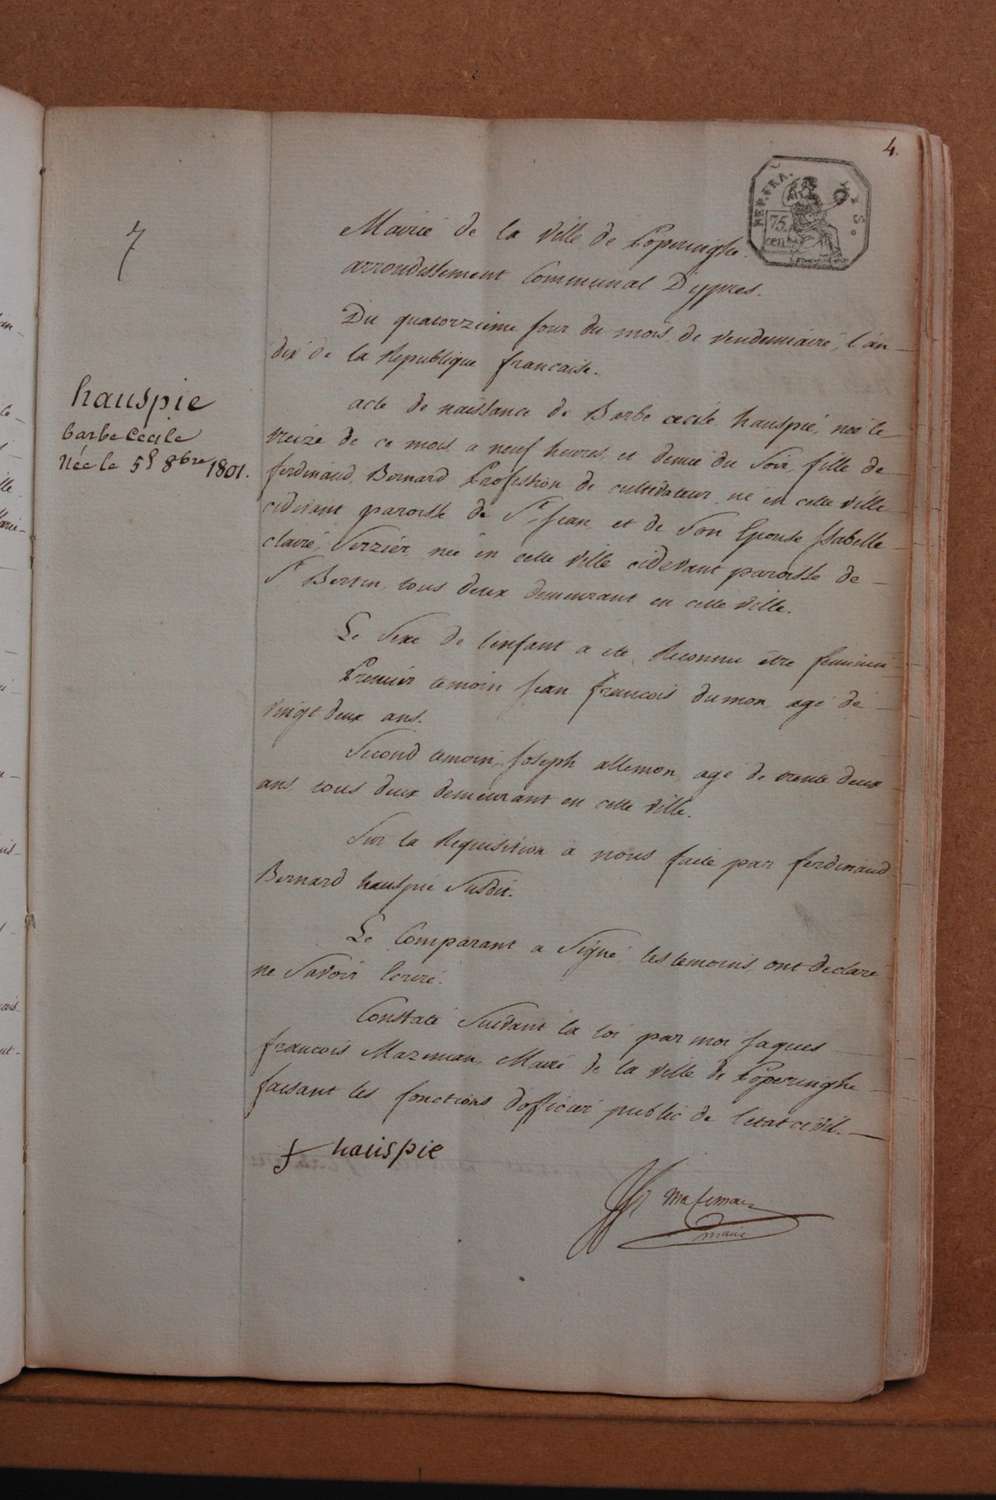 4.
REP. FRA.
75
cent.
7
Mairie de la ville de Poperinghe.
arrondissement Communal D'ypres.
Du quatorzième jour du mois de vendemiaire, l'an
dix de la République francaise.
hauspie
barbe Cecile
Née le 5 8bre 1801.
acte de naissance de Barbe cecile hauspie, née le
treize de ce mois a neuf heures et demie du Soir, fille de
ferdinand Bernard Profession de cultivateur né en cette ville
cidevant paroisse de St Jean, et de Son Epouse Isabelle
claire née en cette ville cidevant paroisse de
St Bertin, tous deux demeurant en cette ville.
Le Sexe de l'enfant a ete Reconnu être feminin
Premier temoin Jean francois dumon agé de
vingt deux ans.
Second temoin, Joseph allemon agé de trente deux
ans tous deux demeurant en cette ville.
Sur la Requisition a nous faite par ferdinand
Bernard hauspie Susdit.
Le Comparant a Signé, les temoins ont declaré
ne Savoir Ecrire.
Constaté Suivant la loi par moi Jaques
francois Mazeman, Maire de la ville de Poperinghe
faisant les fonctions d'officier public de l'etat civil.
f hauspie
JF Mazeman
maire